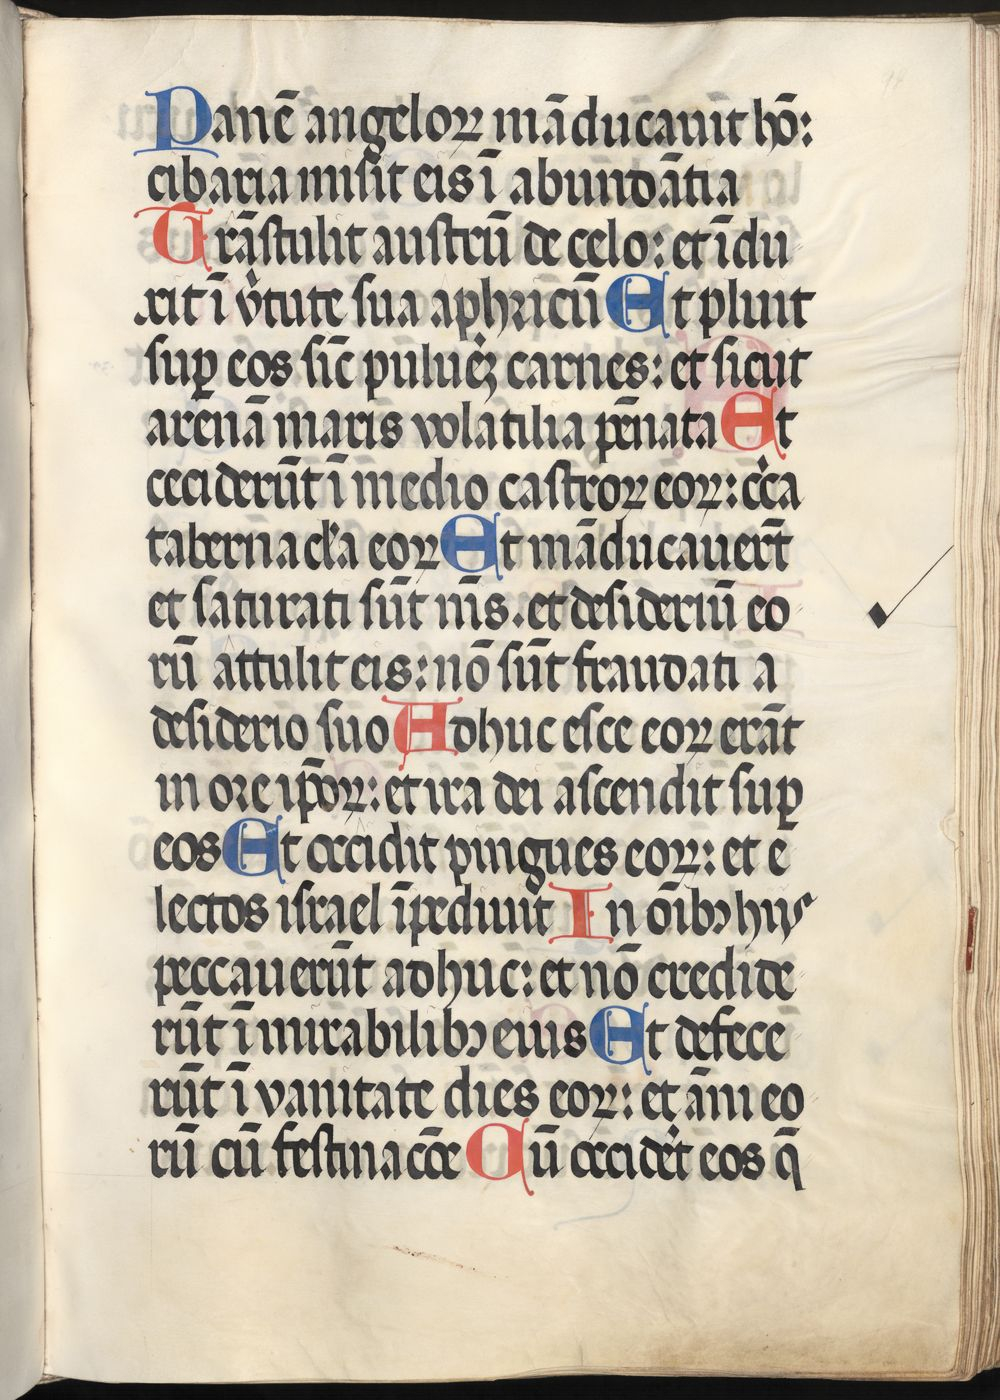 Panē angeloꝝ māducauit hō:
cibaria misit eis ī abundātia
Trāstulit austrū de celo: et īdu
xit ī v̓tute sua aphricū Et pluit
suꝑ eos sic̄ pulueꝝ carnes: et sicut
arenā maris volatilia pēnata Et
ceciderūt ī medio castroꝝ eoꝝ: cͥca
tabernacl̓a eoꝝ Et māducauer̄t
et saturati sūt nīs. et desideriū eo
rū attulit eis: nō sūt fraudati a
desiderio suo Adhuc esce eoꝝ erāt
in ore ip̄oꝝ: et ira dei ascendit suꝑ
eos Et occidit pingues eoꝝ: et e
lectos israel īpediuit In oībꝫ hiis
peccauerūt adhuc: et nō credide
rūt ī mirabilibꝫ eius Et defece
rūt ī vanitate dies eoꝝ: et āni eo
rū cū festinacōe Cū occider̄t eos q̄